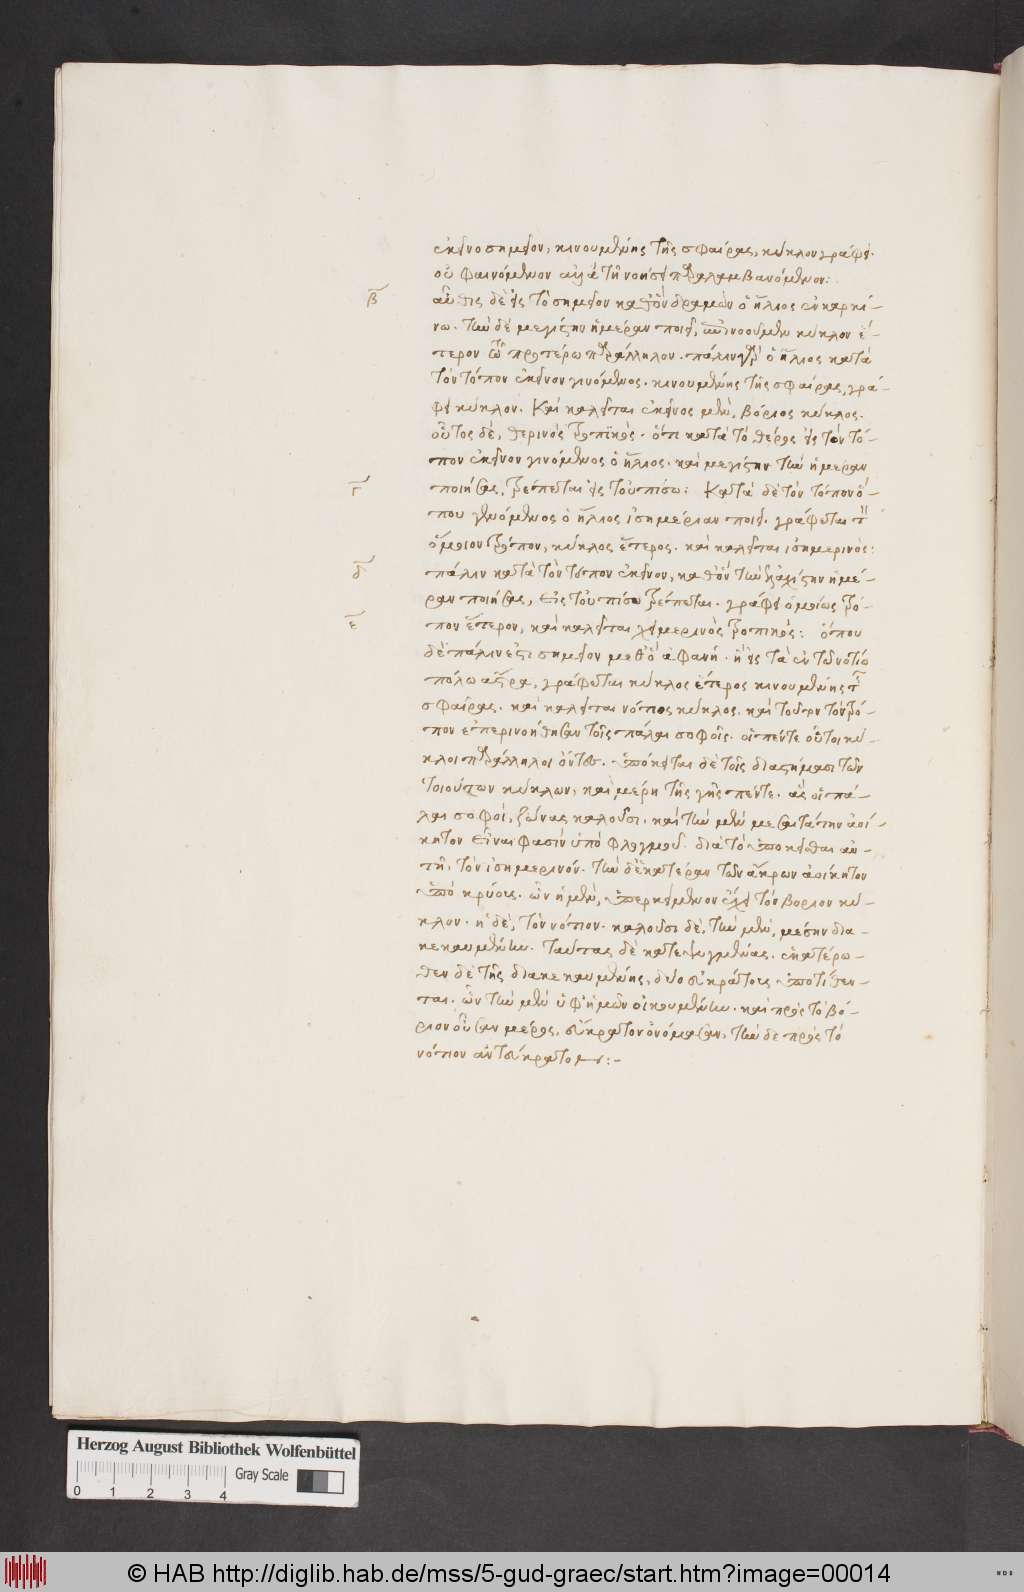 ἐκεῖνο σημεῖον, κινουμένης τῆς σφαίρας, κύκλον γράφει.
οὐ φαινόμενον ἀλλὰ τῇ νοήσει παραλαμβανόμενον:
β
αὖθις δὲ εἰς τὸ σημεῖον καθ' ὃν δραμὼν ὁ ἥλιος ἐν καρκί-
νω. τὴν δὲ μεγίστην ἡμέραν ποιεῖ, ἐπινοοῦμεν κύκλον ἕ-
τερον τῶ προτέρω παράλληλον. πάλιν γὰρ ὁ ἥλιος κατὰ
τὸν τόπον ἐκεῖνον γινόμενος. κινουμένης τῆς σφαίρας, γρά-
φει κύκλον. Καὶ καλεῖται ἐκεῖνος μὲν, βόρειος κύκλος.
οὗτος δὲ, θερινὸς τροπικός. ὅτι κατὰ τὸ θέρος εἰς τὸν τό-
πον ἐκεῖνον γινόμενος ὁ ἥλιος. καὶ μεγίστην τὴν ἡμέραν
γ
ποιήσας, τρέπεται εἰς τοὐπίσω: Κατὰ δὲ τὸν τόπον ὅ-
που γενόμενος ὁ ἥλιος ἰσημερίαν ποιεῖ. γράφεται τὸν
ὅμοιον τρόπον, κύκλος ἕτερος. καὶ καλεῖται ἰσημερινός:
δ
πάλιν κατὰ τὸν τόπον ἐκεῖνον, καθ' ὃν τὴν ἐλαχίστην ἡμέ-
ραν ποιήσας, εἰς τοὐπίσω τρέπεται. γράφει ὁμοίως τρό-
ε
πον ἕτερον, καὶ καλεῖται χειμερινὸς τροπικός: ὅπου
δὲ πάλιν ἐστι σημεῖον μεθ' ὃ ἀφανῆ. ἢ εἰς τὰ ἐν τῶ νοτίω
πόλω ἄστρα, γράφεται κύκλος ἕτερος κινουμένης τῆς
σφαίρας. καὶ καλεῖται νότιος κύκλος. καὶ τοῦτον τὸν τρό-
πον ἐπερινοήθησαν τοῖς πάλαι σοφοῖς. οἱ πέντε οὗτοι κύ-
κλοι παράλληλοι ὄντες. ὑπόκειται δὲ τοῖς διαστήμασι τῶν
τοιούτων κύκλων, καὶ μέρη τῆς γῆς πέντε. ἃς οἱ πά-
λαι σοφοί, ζώνας καλοῦσι. καὶ τὴν μὲν μεσαιτάτην ἀοί-
κητον εἶναι φασὶν ὑπὸ φλογμοῦ. διὰ τὸ ὑποκεῖσθαι αὐ-
τῇ, τὸν ἰσημερινόν. τὴν δ' ἑκατέραν τῶν ἄκρων ἀοίκητον
ὑπὸ κρύους. ὧν ἡ μὲν, ὑπερκείμενον ἔχει τὸν βόρειον κύ-
κλον. ἡ δὲ, τὸν νότιον. καλοῦσι δὲ, τὴν μὲν, μέσην δια-
κεκαυμένην. ταύτας δὲ κατεψυγμένας. ἑκατέρω-
θεν δὲ τῆς διακεκαυμένης, δύο εὐκράτους ὑποτίθεν-
ται. ὧν τὴν μὲν ὑφ' ἡμῶν οἰκουμένην. καὶ πρὸς τὸ βό-
ρειον οὖσαν μέρος, εὔκρατον ὀνόμασαν, τὴν δὲ πρὸς τὸ
νότιον ἀντεύκρατον:–
Herzog August Bibliothek Wolfenbüttel
Gray Scale
0 1 2 3 4
© HAB http://diglib.hab.de/mss/5-gud-graec/start.htm?image=00014